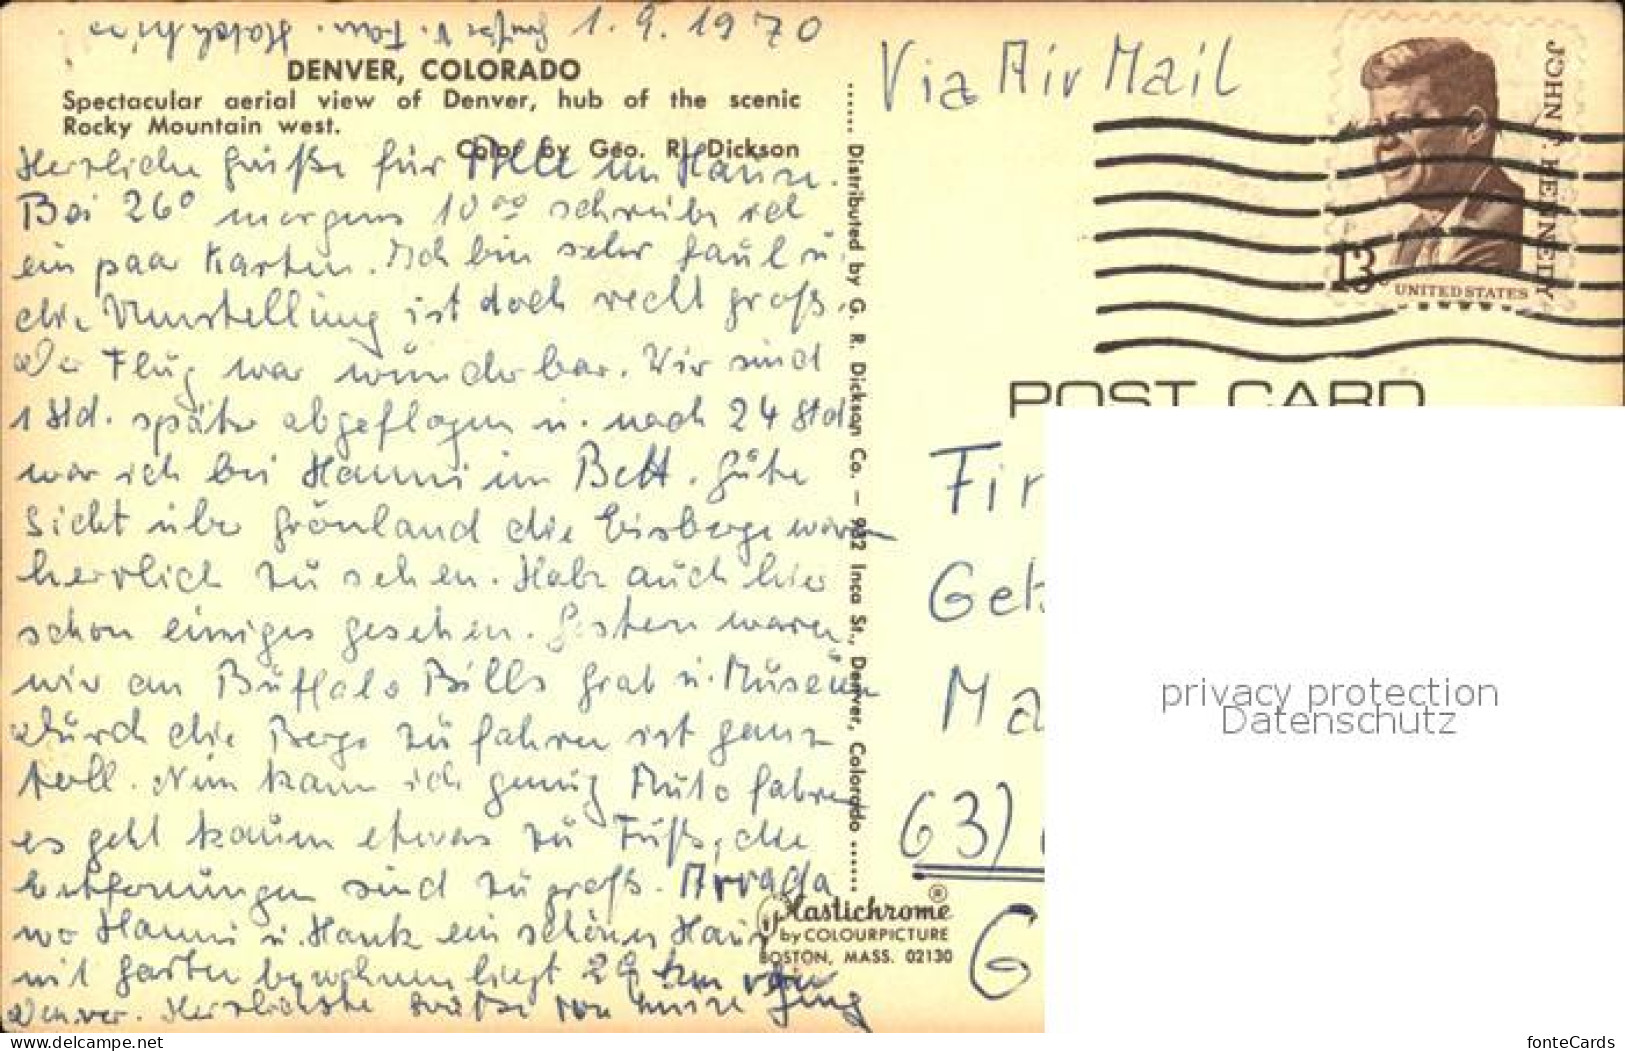 1. 9. 1970
DENVER, COLORADO
Spectacular aerial view of Denver, hub of the scenic
Rocky Mountain west.
Color by Geo. R. Dickson
Herzliche Grüße für Alle im Hause.
Bei 26° morgens 10⁰⁰ schreibe ich
ein paar Karten. Ich bin sehr faul u.
die Umstellung ist doch recht groß.
Der Flug war wunderbar. Wir sind
1 Std. später abgeflogen u. nach 24 Std
war ich bei Hanni im Bett. Gute
Sicht über Grönland die Eisberge waren
herrlich zu sehen. Habe auch hier
schon einiges gesehen. Gestern waren
wir an Buffalo Bills Grab u. Museum
Durch die Berge zu fahren ist ganz
toll. Nun kann ich genug Auto fahren
es geht kaum etwas zu Fuß, die
Entfernungen sind zu groß. Arvada
wo Hanni u. Hank ein schönes Haus
mit Garten bewohnen liegt 20 km von
Denver. Herzlichste Grüße von
Distributed by G. R. Dickson Co. — 932 Inca St., Denver, Colorado
Plastichrome®
by COLOURPICTURE
BOSTON, MASS. 02130
Via Air Mail
JOHN F. KENNEDY
13c
UNITED STATES
POST CARD
Fir
Geb
Ma
63)
G
privacy protection
Datenschutz
www.delcampe.net
fonteCards